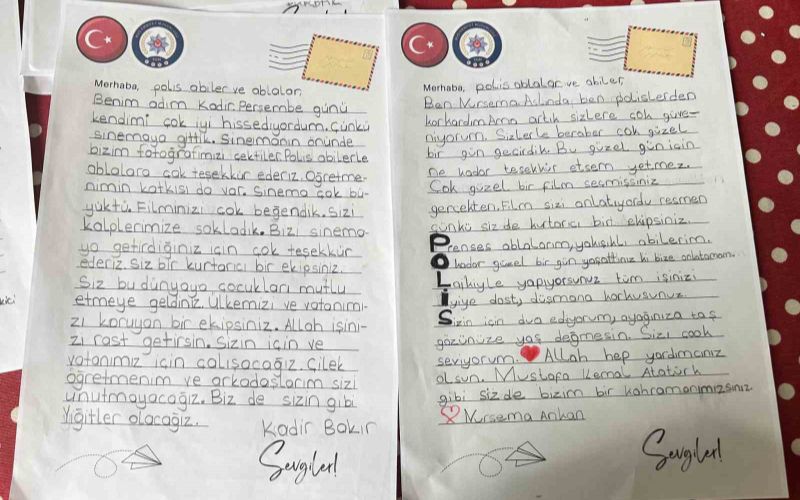 Merhaba, polis abiler ve ablalar
Benim adım Kadir. Perşembe günü
kendimi çok iyi hissediyordum. Çünkü
sinemaya gittik. Sinemanın önünde
bizim fotoğrafımızı çektiler. Polis abilerle
ablalara çok teşekkür ederiz. Öğretme-
nimin katkısı da var. Sinema çok bü-
yüktü. Filminizi çok beğendik. Sizi
kalplerimize sakladık. Bizi sinema-
ya getirdiğiniz için çok teşekkür
ederiz. Siz bir kurtarıcı bir ekipsiniz.
Siz bu dünyaya çocukları mutlu
etmeye geldiniz. Ülkemizi ve vatanımı-
zı koruyan bir ekipsiniz. Allah işini-
zi rast getirsin. Sizin için ve
vatanımız için çalışacağız. Çilek
öğretmenim ve arkadaşlarım sizi
unutmayacağız. Biz de sizin gibi
Yiğitler olacağız.
Kadir Bakır
Sevgiler!
Merhaba, polis ablalar ve abiler
Ben Nursema Aslında ben polislerden
korkardım Ama artık sizlere çok güve-
niyorum. Sizlerle beraber çok güzel
bir gün geçirdik. Bu güzel gün için
ne kadar teşekkür etsem yetmez.
Çok güzel bir film seçmişsiniz
gerçekten. Film sizi anlatıyordu resmen
çünkü siz de kurtarıcı bir ekipsiniz.
Prenses ablalarım, yakışıklı abilerim.
O kadar güzel bir gün yaşattınız ki bize anlatamam.
Layikiyle yapıyorsunuz tüm işinizi
İyiye dost, düşmana korkusunuz.
Sizin için dua ediyorum, ayağınıza taş
gözünüze yaş değmesin. Sizi çook
seviyorum. Allah hep yardımcınız
olsun. Mustafa Kemal Atatürk
gibi siz de bizim bir kahramanımızsınız.
Nursema Arıkan
Sevgiler!